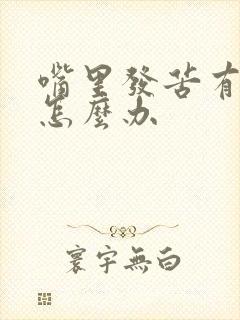 嘴里發苦有
怎麼办
寰宇無白